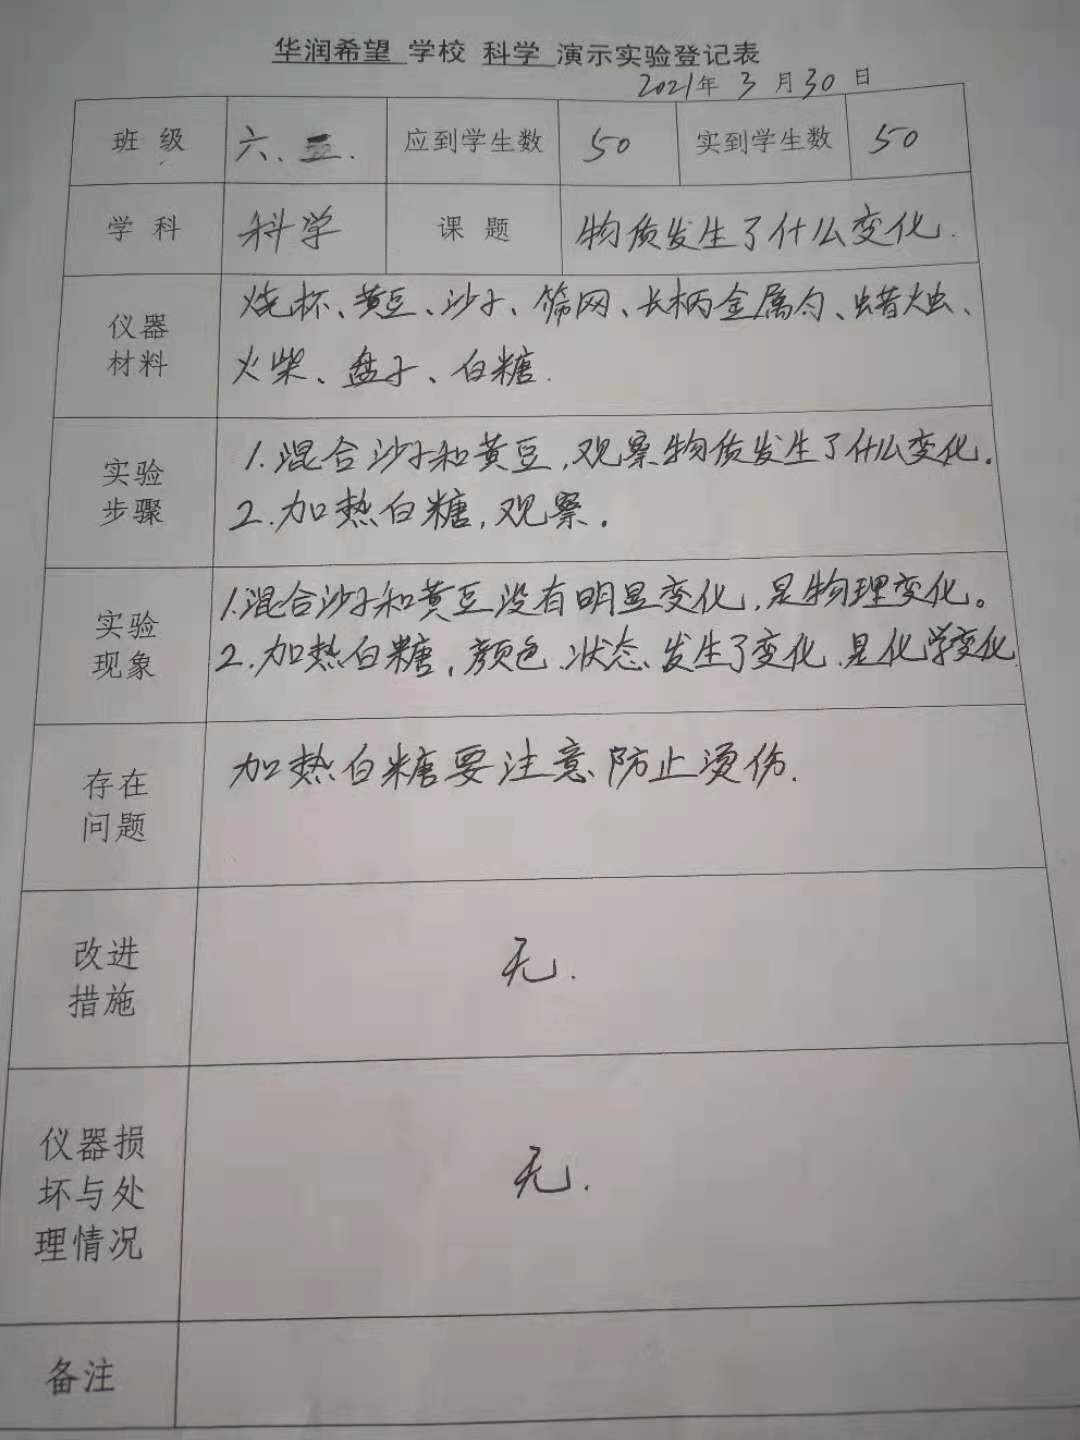 华润希望 学校 科学 演示实验登记表
2021年 3 月 30 日
班 级 六、五. 应到学生数 50 实到学生数 50
学 科 科学 课 题 物质发生了什么变化.
仪器
材料
烧杯、黄豆、沙子、筛网、长柄金属勺、蜡烛、
火柴、盘子、白糖.
实验
步骤
1.混合沙子和黄豆,观察物质发生了什么变化.
2.加热白糖,观察.
实验
现象
1.混合沙子和黄豆没有明显变化,是物理变化。
2.加热白糖,颜色、状态、发生了变化、是化学变化
存在
问题
加热白糖要注意、防止烫伤.
改进
措施
无.
仪器损
坏与处
理情况
无.
备注